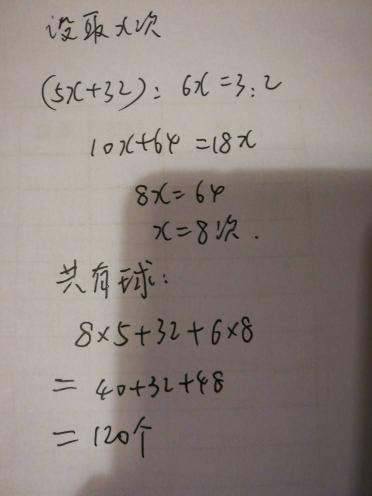 设取x次
(5x+32):6x=3:2
10x+64=18x
8x=64
x=8次.
共有球:
8×5+32+6×8
=40+32+48
=120个